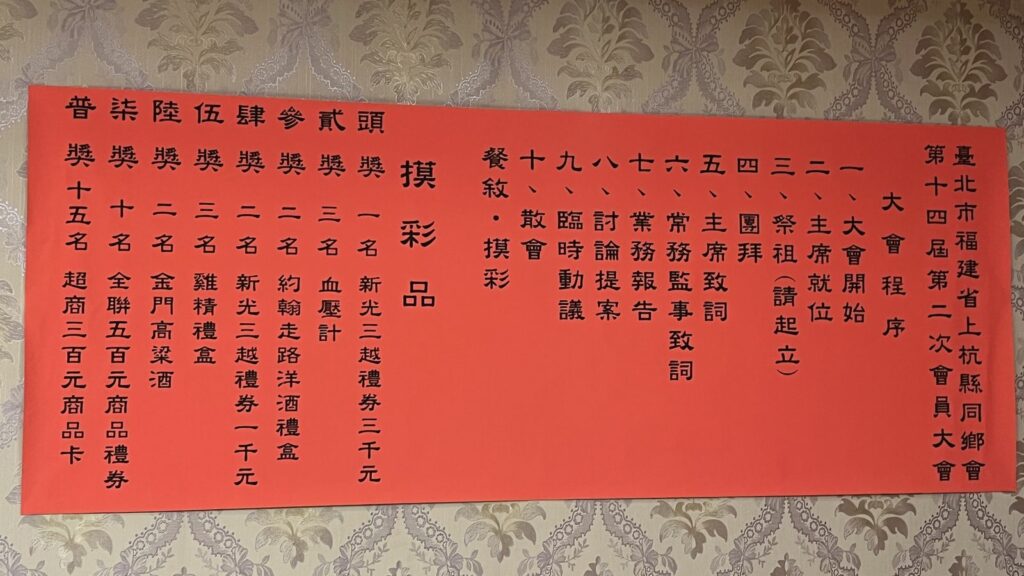 臺北市福建省上杭縣同鄉會
第十四屆第二次會員大會
大會程序
一、大會開始
二、主席就位
三、祭祖(請起立)
四、團拜
五、主席致詞
六、常務監事致詞
七、業務報告
八、討論提案
九、臨時動議
十、散會
餐敘・摸彩
摸彩品
頭獎 一名 新光三越禮券三千元
貳獎 三名 血壓計
參獎 二名 約翰走路洋酒禮盒
肆獎 二名 新光三越禮券一千元
伍獎 三名 雞精禮盒
陸獎 二名 金門高粱酒
柒獎 十名 全聯五百元商品禮券
普獎十五名 超商三百元商品卡